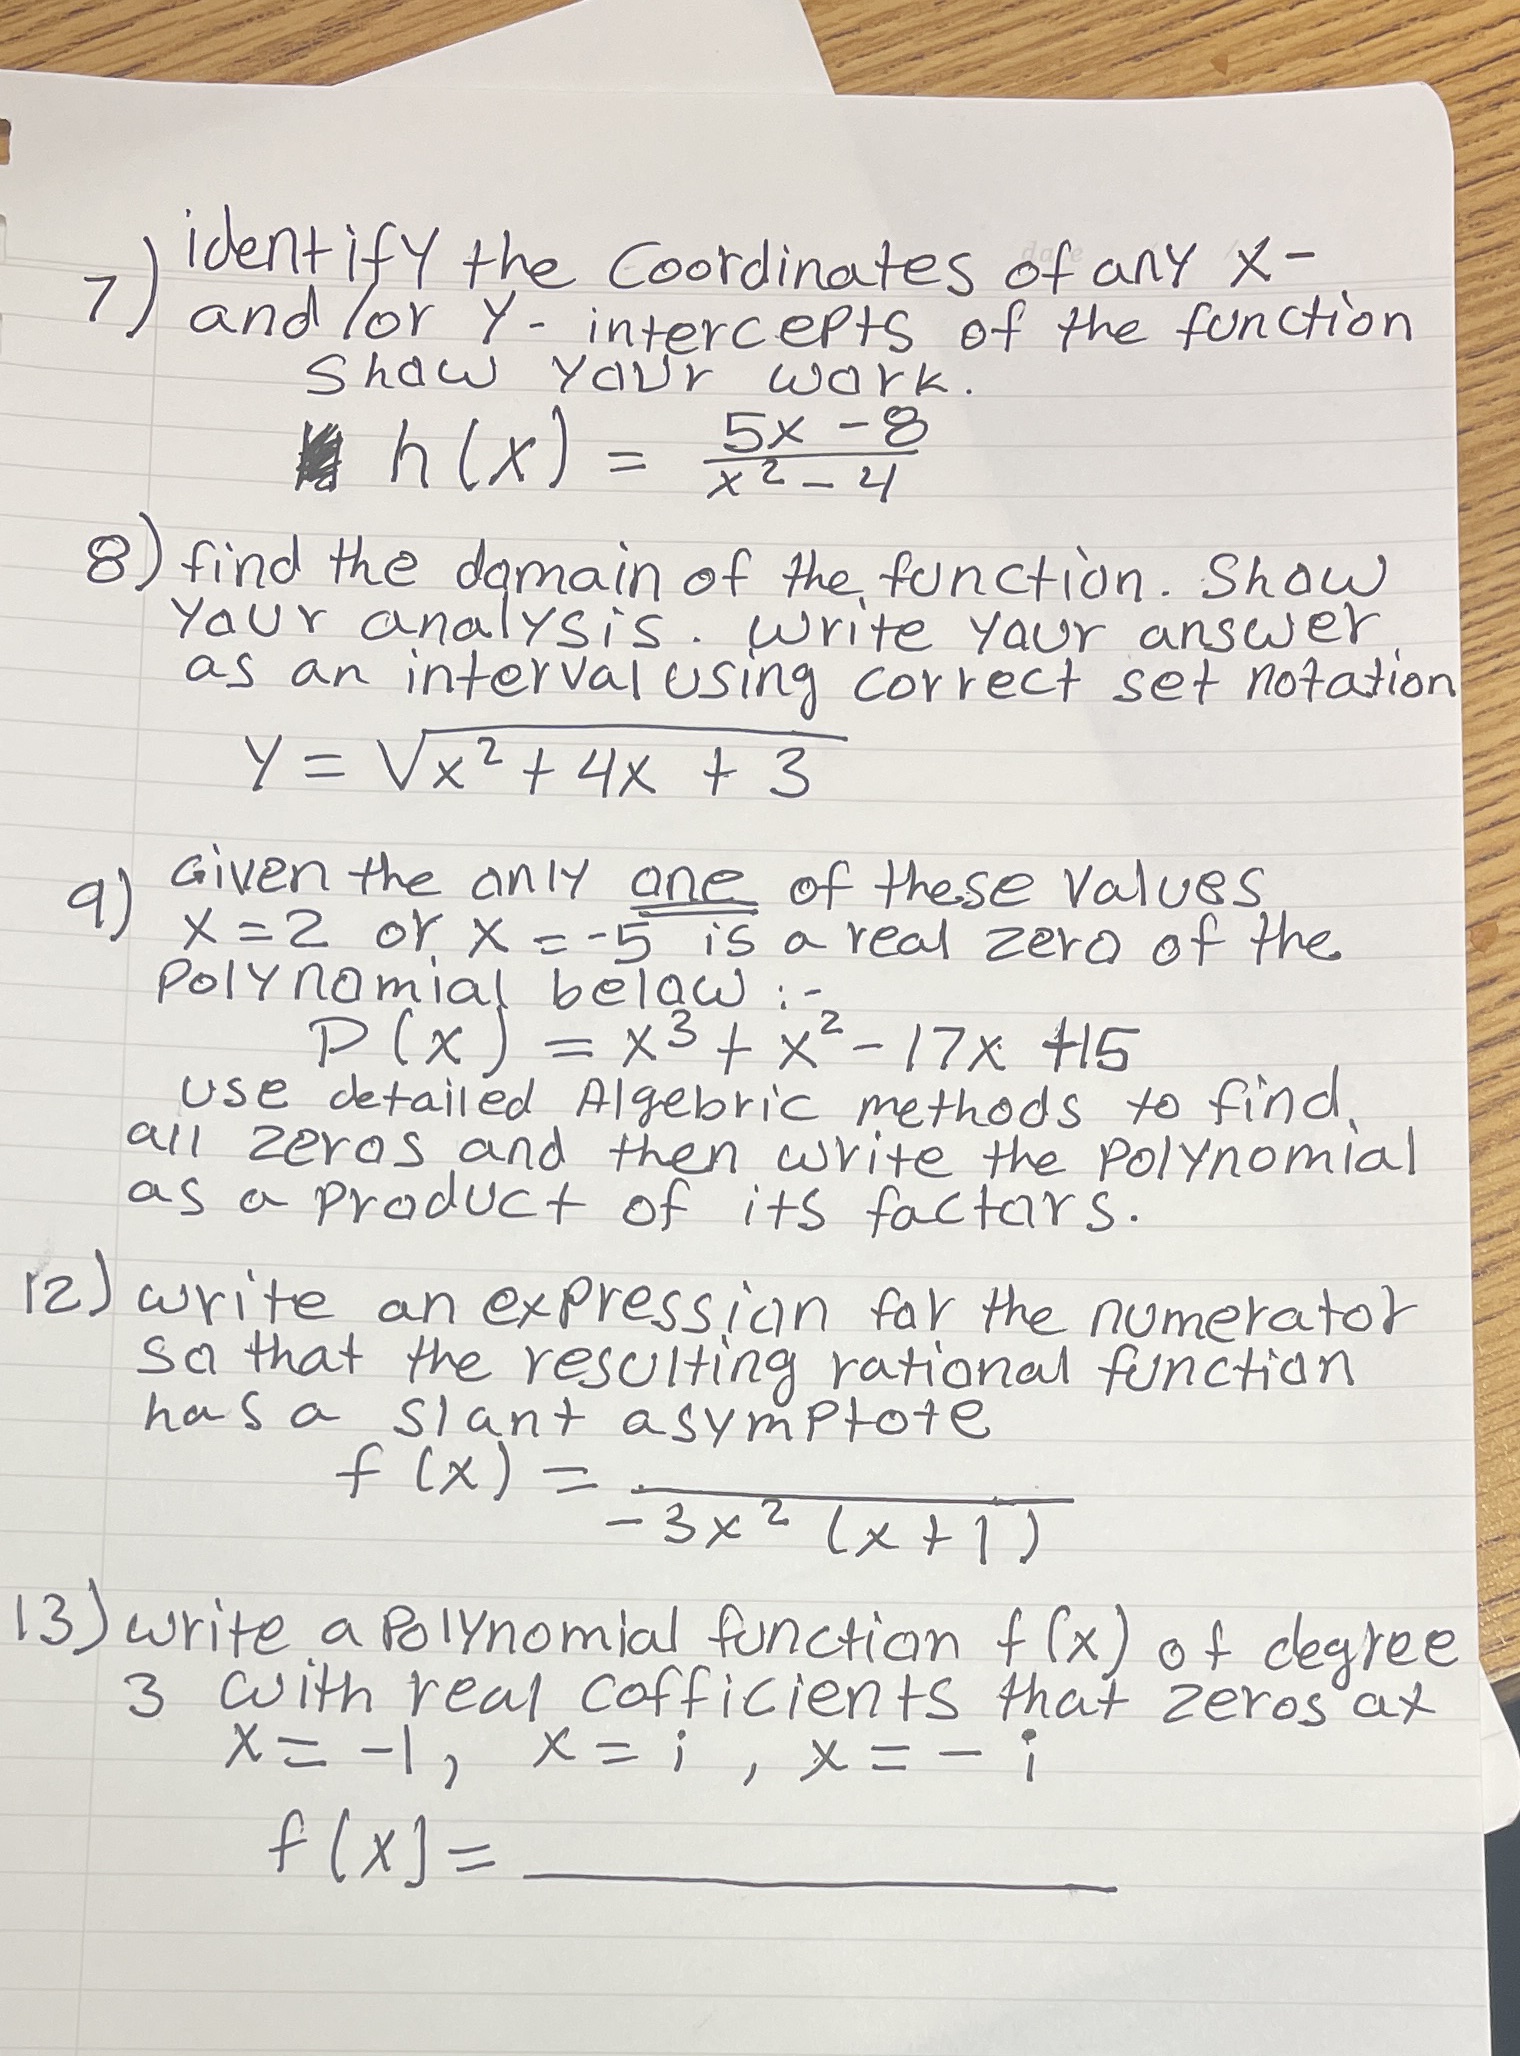 7) identify the Coordinates of any x-
and/or y-intercepts of the function
Show your work.
h(x) = \frac{5x-8}{x^2-4}
8) find the domain of the function. Show
your analysis. Write your answer
as an interval using correct set notation
y = √(x² + 4x + 3)
9) Given the only one of these values
x = 2 or x = -5 is a real zero of the
Polynomial below :-
P(x) = x³ + x² - 17x + 15
use detailed Algebric methods to find
all zeros and then write the polynomial
as a product of its factors.
12) write an expression for the numerator
so that the resulting rational function
has a slant asymptote
f(x) = \frac{}{-3x^2(x+1)}
13) write a Polynomial function f(x) of degree
3 with real cofficients that zeros at
x = -1, x = i, x = -i
f(x] = ________